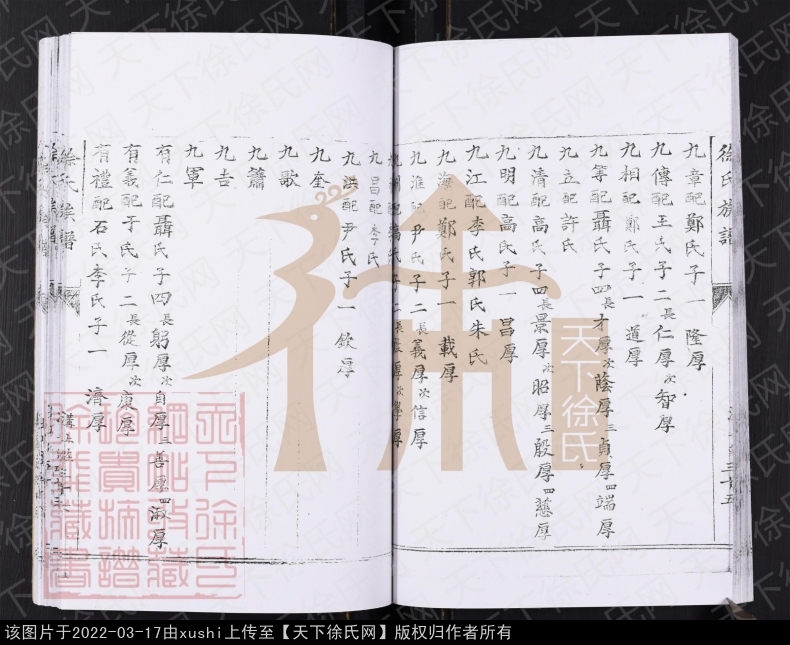 徐氏族譜
九章配鄭氏子一 隆厚
九傳配王氏子二長仁厚次智厚
九相配鄭氏子一 道厚
九筆配聶氏子四長才厚次蔭厚三貞厚四端厚
九立配許氏
九清配高氏子四長景厚次昭厚三殷厚四慈厚
九明配高氏子一 昌厚
九江配李氏郭氏朱氏
九海配鄭氏子一 載厚
九淮配尹氏子二長義厚次信厚
九昌配李氏
九洪配尹氏子一 欽厚
九奎
九歌
九簫
九吉
九軍
有仁配聶氏子四 長躬厚次貞厚三善厚四淑厚
有義配于氏子二長從厚次康厚
有禮配石氏李氏子一 濬厚
徐氏族譜
天下徐氏
天下徐氏网
该图片于2022-03-17由xushi上传至【天下徐氏网】版权归作者所有